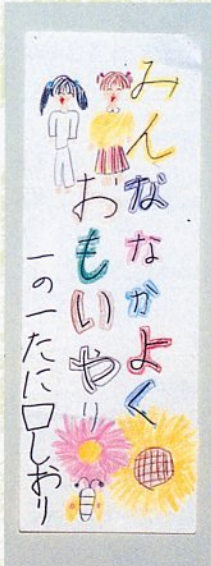 みんななかよく
おもいやり
一の一たに口しおり